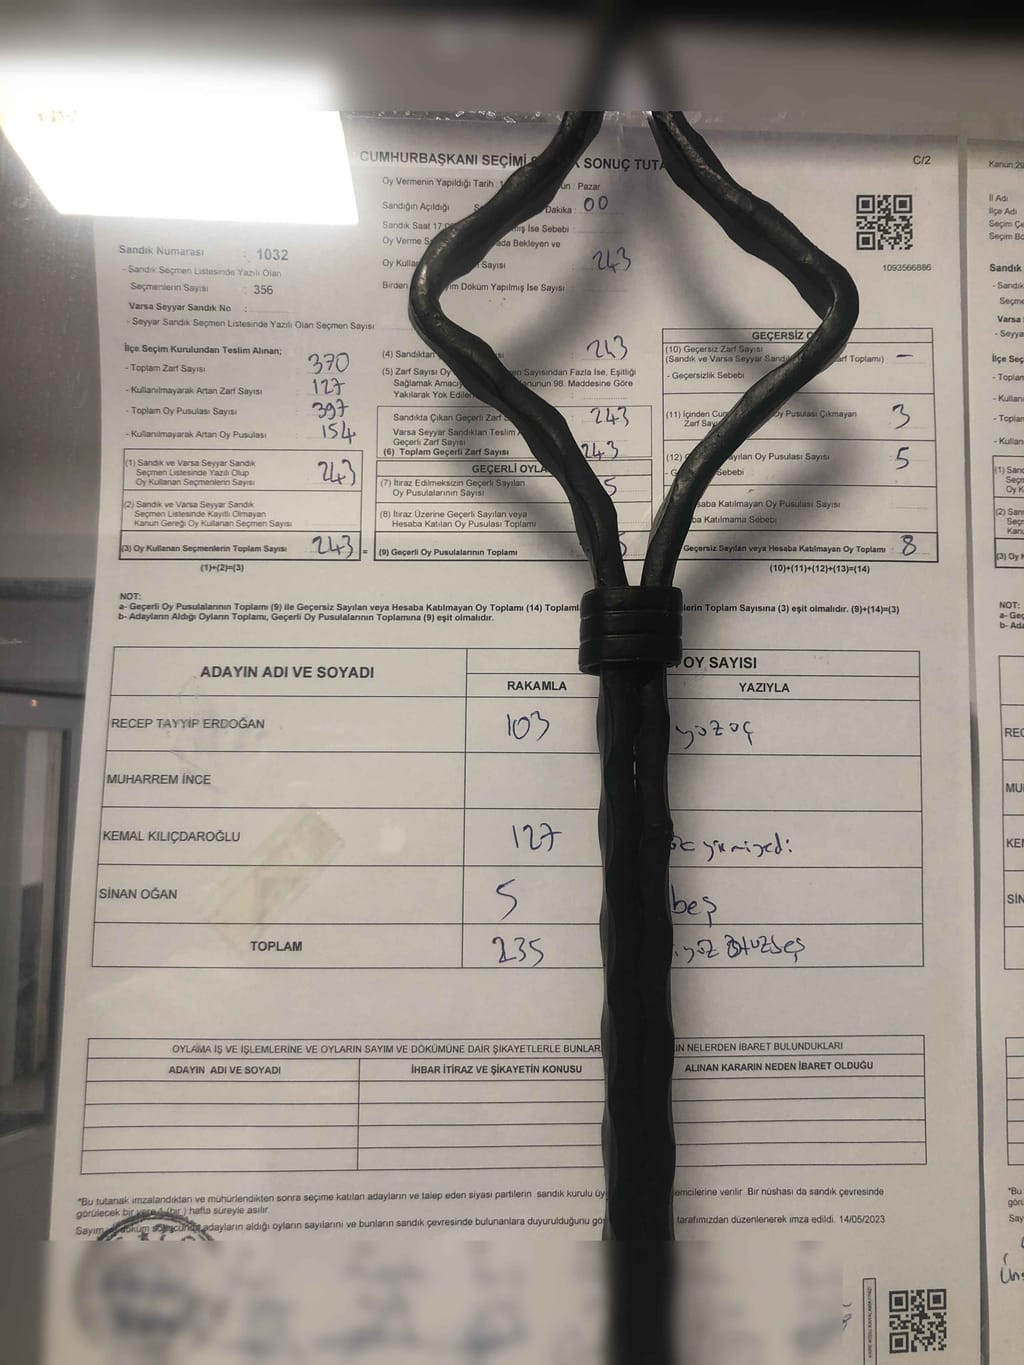 CUMHURBAŞKANI SEÇİMİ SONUÇ
C/2
Oy Vermenin Yapıldığı Tarih : Pazar
Sandığın Açıldığı Dakika : 00
Sandık Saat İse Sebebi :
Oy Verme Bekleyen ve
Oy Sayısı 243
Döküm Yapılmış İse Sayısı
1093566886
Sandık Numarası : 1032
- Sandık Seçmen Listesinde Yazılı Olan
Seçmenlerin Sayısı : 356
Varsa Seyyar Sandık No :
- Seyyar Sandık Seçmen Listesinde Yazılı Olan Seçmen Sayısı:
İlçe Seçim Kurulundan Teslim Alınan;
- Toplam Zarf Sayısı 370
- Kullanılmayarak Artan Zarf Sayısı 127
- Toplam Oy Pusulası Sayısı 397
- Kullanılmayarak Artan Oy Pusulası 154
(1) Sandık ve Varsa Seyyar Sandık
Seçmen Listesinde Yazılı Olup
Oy Kullanan Seçmenlerin Sayısı 243
(2) Sandık ve Varsa Seyyar Sandık
Seçmen Listesinde Kayıtlı Olmayan
Kanun Gereği Oy Kullanan Seçmen Sayısı
(3) Oy Kullanan Seçmenlerin Toplam Sayısı 243 =
(1)+(2)=(3)
(4) Sandıktan 243
(5) Zarf Sayısı Oy Sayısından Fazla İse, Eşitliği
Sağlamak 98. Maddesine Göre
Yakılarak Yok
Sandıkta Çıkan Geçerli Zarf 243
Varsa Seyyar Sandıktan Teslim
Geçerli Zarf Sayısı
(6) Toplam Geçerli Zarf Sayısı 243
GEÇERLİ
(7) İtiraz Edilmeksizin Geçerli Sayılan
Oy Pusulalarının Sayısı
(8) İtiraz Üzerine Geçerli Sayılan veya
Hesaba Katılan Oy Pusulası Toplamı
(9) Geçerli Oy Pusulalarının Toplamı
GEÇERSİZ
(10) Geçersiz Zarf Sayısı
(Sandık ve Varsa Seyyar Toplamı) —
- Geçersizlik Sebebi
(11) İçinden Oy Pusulası Çıkmayan
Zarf 3
(12) Oy Pusulası Sayısı 5
Sebebi
Katılmayan Oy Pusulası
Katılmama Sebebi
Geçersiz Sayılan veya Hesaba Katılmayan Oy Toplamı 8
(10)+(11)+(12)+(13)=(14)
NOT:
a- Geçerli Oy Pusulalarının Toplamı (9) ile Geçersiz Sayılan veya Hesaba Katılmayan Oy Toplamı (14) Toplam Sayısına (3) eşit olmalıdır. (9)+(14)=(3)
b- Adayların Aldığı Oyların Toplamı, Geçerli Oy Pusulalarının Toplamına (9) eşit olmalıdır.
ADAYIN ADI VE SOYADI OY SAYISI
RAKAMLA YAZIYLA
RECEP TAYYİP ERDOĞAN 103 yüzüç
MUHARREM İNCE
KEMAL KILIÇDAROĞLU 127 yirmiyedi
SİNAN OĞAN 5 beş
TOPLAM 235 yüz otuzbeş
OYLAMA İŞ VE İŞLEMLERİNE VE OYLARIN SAYIM VE DÖKÜMÜNE DAİR ŞİKAYETLERLE NELERDEN İBARET BULUNDUKLARI
ADAYIN ADI VE SOYADI İHBAR İTİRAZ VE ŞİKAYETİN KONUSU ALINAN KARARIN NEDEN İBARET OLDUĞU
"Bu tutanak imzalandıktan ve mühürlendikten sonra seçime katılan adayların ve talep eden siyasi partilerin sandık kurulu verilir .Bir nüshası da sandık çevresinde
görülecek bir yere 1 (bir ) hafta süreyle asılır.
adayların aldığı oyların sayılarını ve bunların sandık çevresinde bulunanlara duyurulduğunu tarafımızdan düzenlenerek imza edildi. 14/05/2023